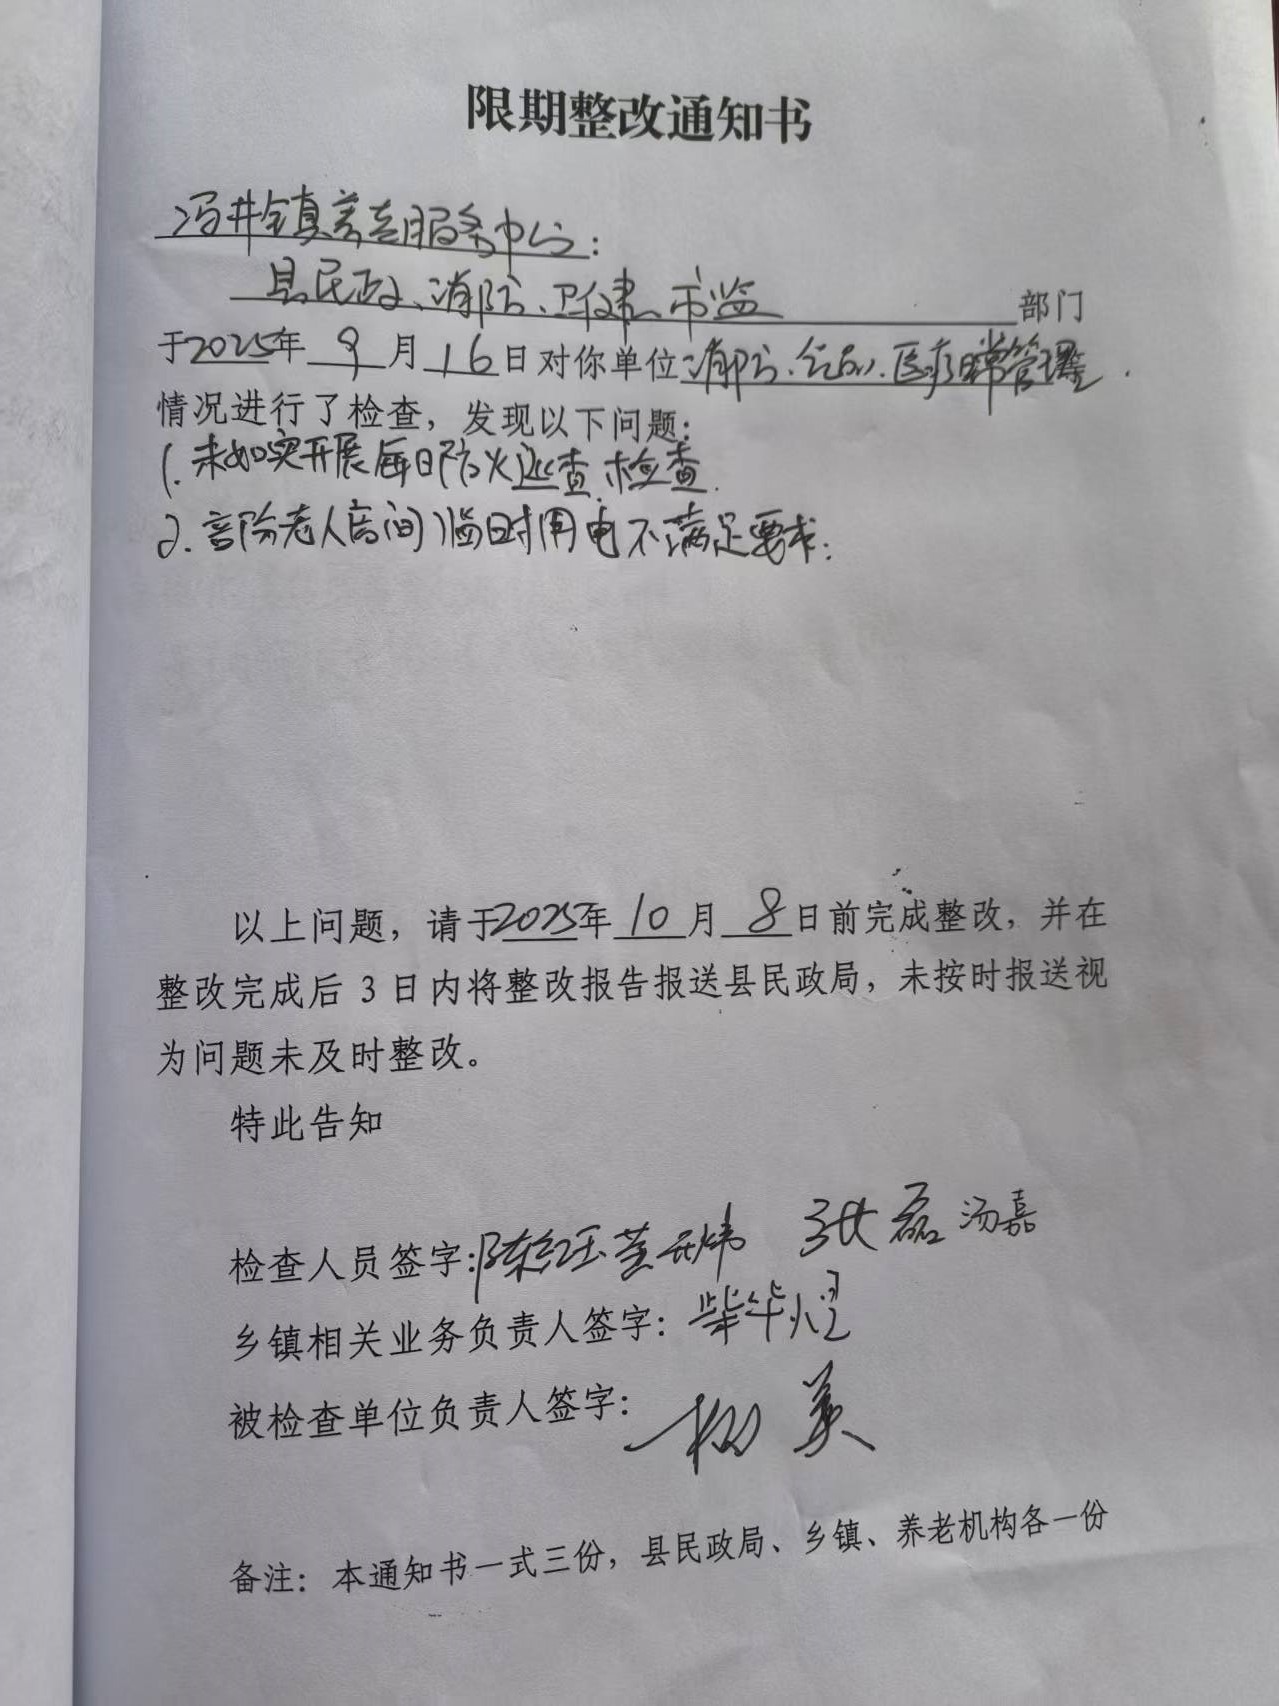 限期整改通知书
冯井镇养老服务中心:
县民政、消防、卫健、市监 部门
于2025年 9 月 16 日对你单位消防、食品、医疗日常管理等
情况进行了检查，发现以下问题:
1. 未如实开展每日防火巡查、检查.
2. 部份老人房间临时用电不满足要求;
以上问题，请于2025年 10 月 8 日前完成整改，并在
整改完成后 3 日内将整改报告报送县民政局，未按时报送视
为问题未及时整改。
特此告知
检查人员签字: 张磊 汤嘉
乡镇相关业务负责人签字: 柴华煜
被检查单位负责人签字:
备注: 本通知书一式三份，县民政局、乡镇、养老机构各一份